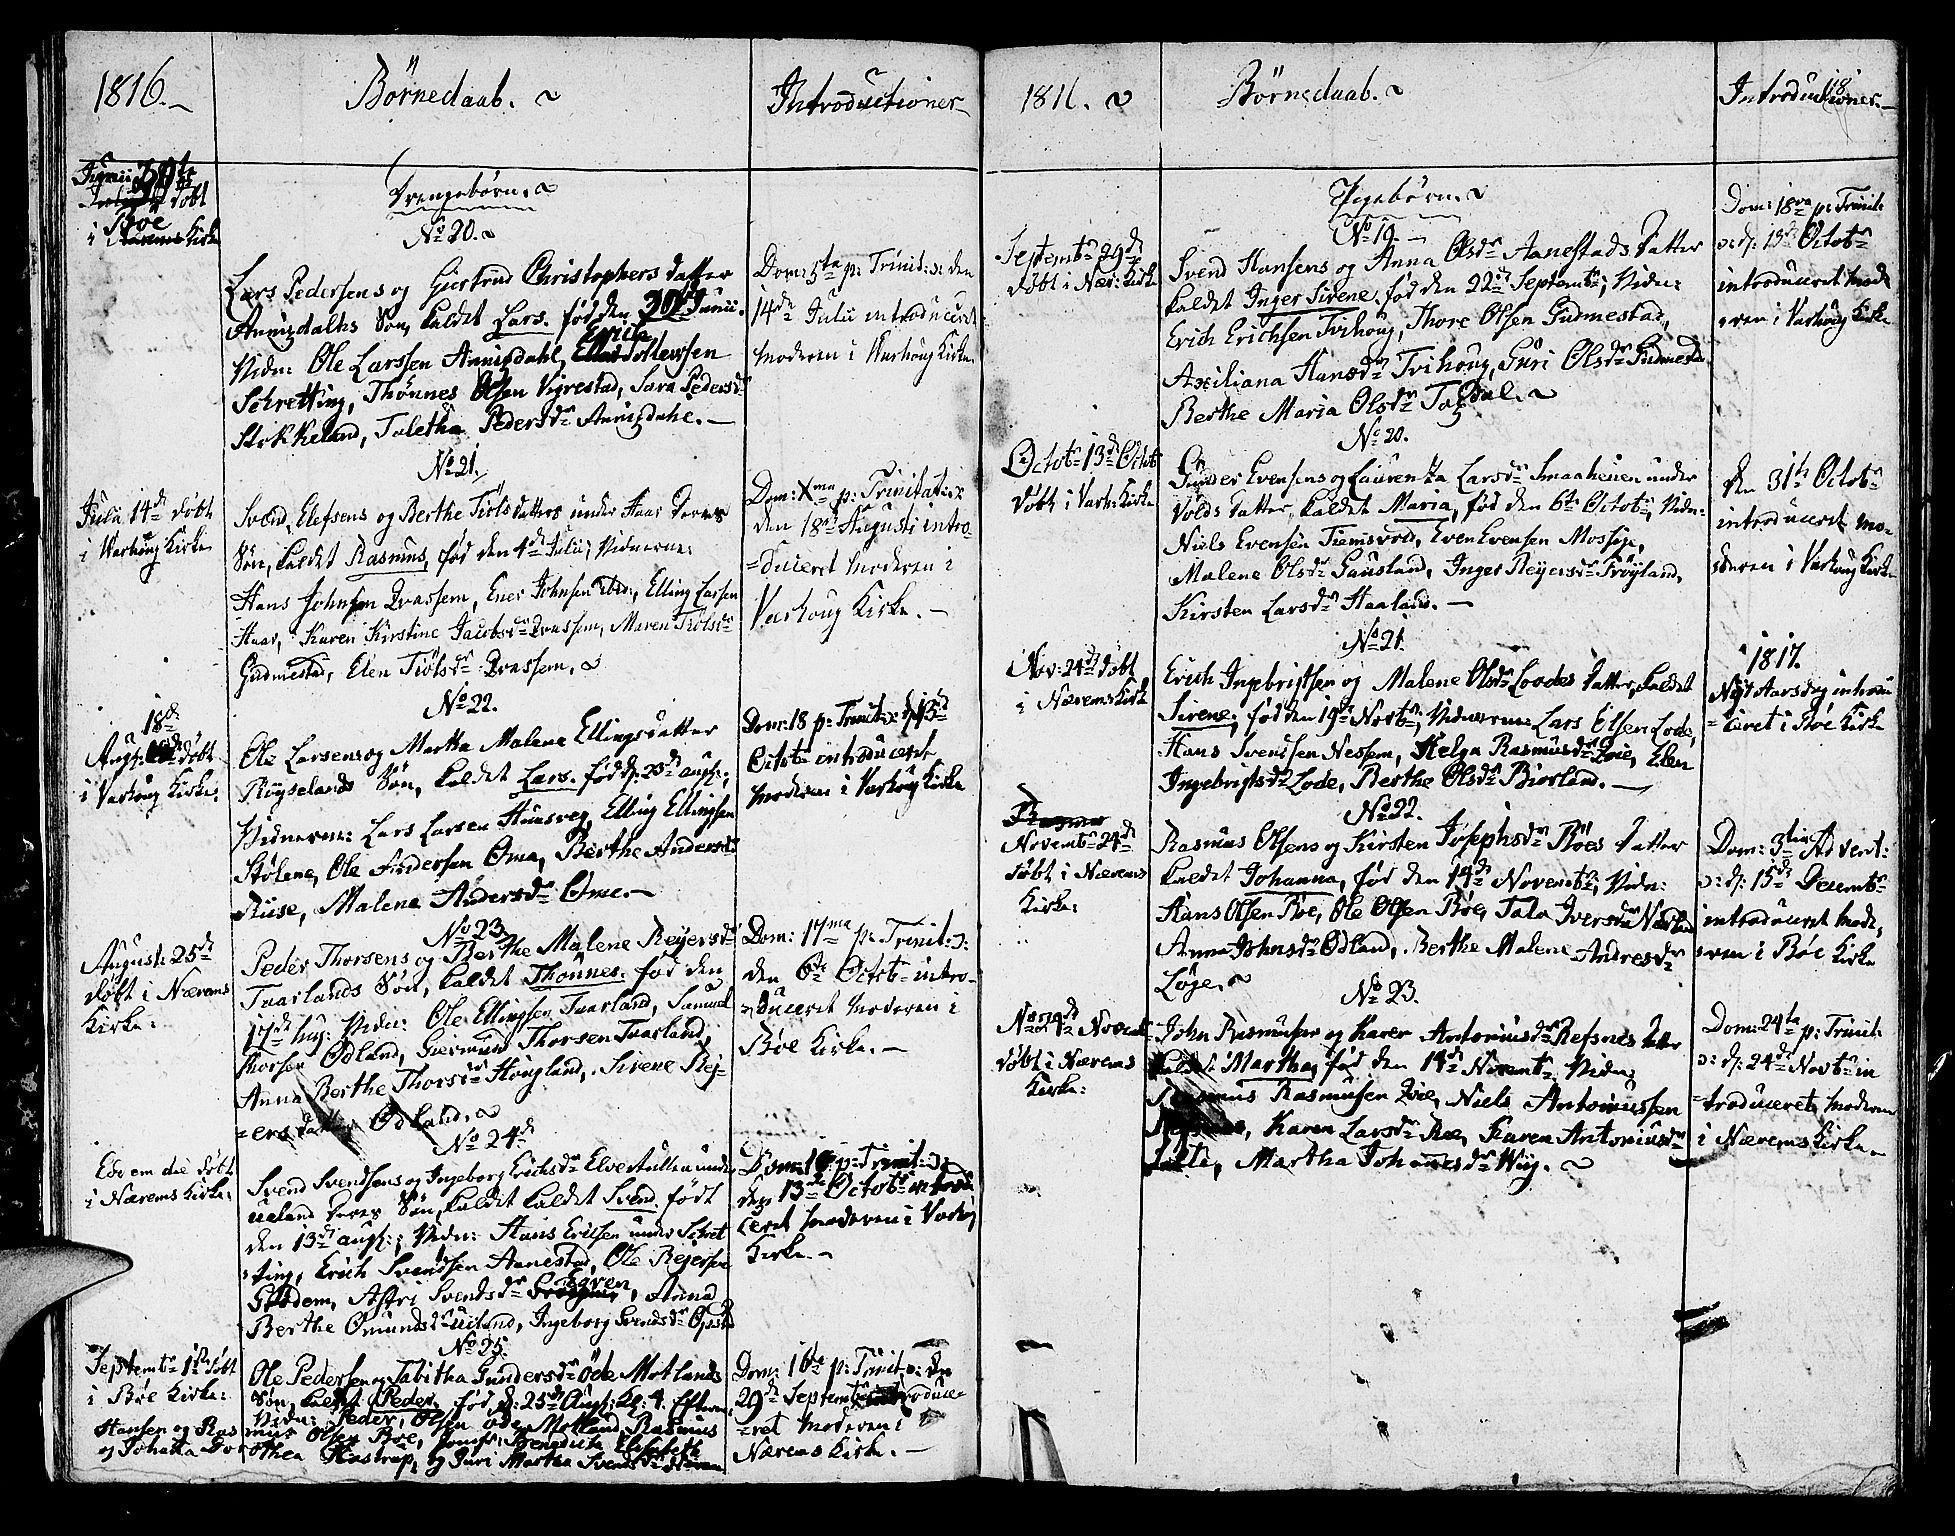 1816.
Börnedaab.
Introductioner
Junii 30te
døbt
Böe
i Kirke
Drengebørn.
No 20.
Lars Pedersens og Giertrud Christophers datter
Aniigdalhs Søn, kaldet Lars. fød den 30te Junii.
Vidn: Ole Larssen Aniigdahl, Tollewsen
Schretting, Thönnes Olsen Vigrestad, Sara Pedersdr
Stokkeland, Taletha Pedersdr Aniigdahl.
Dom: 5ta p: Trinit: ɔ: den
14de Julii introduceret
Moderen i Varhoug Kirke.
No 21.
Julii 14de døbt
i Varhoug Kirke
Svend Elefsens og Berthe Tiöls datters under Haar Deres
Søn, kaldet Rasmus, fød den 4de Julii, Vidnerne:
Hans Johnsen Qvassem, Ener Johnsen ibid:, Elling Larsen
Haar, Karen Kirstine Jacobsdr Qvassem, Maren Tiölsdr
Gudmestad, Elen Tiölsdr Qvassem.
Dom: Xma p: Trinitatis
den 18de Augusti intro-
=duceret Moderen i
Varhoug Kirke.
No 22.
18de
Aug: døbt
i Varhoug Kirke.
Ole Larsens og Martha Malene Ellingsdatter
Riigselands Søn, kaldet Lars. fød d: 23de aug:,
Vidnerne: Lars Larsen Huusveg, Elling Ellingsen
Stølene, Ole Andersen Oma, Berthe Andersdr
Ruse, Malena Andersdr Ome.
Dom: 18 p: Trinit: d: 13de
Octobr introduceret
Moderen i Varhoug Kirke
No 23.
August: 25de
døbt i Nærems
Kirke:
Peder Thorsens og Berthe Malene Reyersdr
Taarlands Søn, kaldet Thönnes. fød den
17de hug: Vidn: Ole Ellingsen Taarland, Samuel
Thorsen Ødland, Giermund Thorsen Taarland,
Anna Berthe Thorsdr Høugland, Sirene Rej-
=ersdatter Ødland.
Dom: 17ma p: Trinit: ɔ:
den 6te Octobr intro-
=duceret Moderen i
Böe Kirke.
No 24de
Eodem die døbt
i Nærems Kirke.
Svend Svendsens og Ingeborg Erichsdr under
ueland Deres Søn, kaldet Svend. født
den 13de aug:, Vidn: Hans Ericsen under Schret
=ting, Erich Svendsen Aanestad, Ole Rejersen
Astri Svendsdr Anna
Berthe Omundsdr Ingeborg Svendsdr
Dom: p: Trinit: ɔ:
den 13de Octobr introdu
ceret Moderen i Varhoug
Kirke.
No 25.
Septembr 1ste døbt
i Böe Kirke:
Ole Pedersen og Tabitha Gundersdr öde Motlands
Søn, kaldet Peder. fød d: 25de Aug: Kl: 4. Efterm:
Vidn: Peder Olsen øde Motland, Rasmus
Hansen og Ras mus Olsen Böe, Jomfr: Benedicte Elisabeth
og Johanna Dor othea Kastrup, og Juri Martha Svendsdr
Dom: 16de p: Trinit: ɔ: den
29de Septembr introduce
=ret Moderen i
Nærems Kirke.
1816.
Börnedaab.
Introductioner.
18
Pigebørn.
No 19.
Septembr 29de
døbt i Nær: Kirke
Svend Hansens og Anna Olsdr Aanestads Datter
kaldet Inger Sirene. fød den 22de Septembr, Vidn:
Erich Erichsen Tvihoug, Thore Olsen Gudmestad,
Axiliana Hansdr Tvihoug, Guri Olsdr Gudmestad
Berthe Maria Olsdr Taxdal.
Dom: 18va p: Trinit:
ɔ: d: 13de Octobr
introduceret Mode
=ren i Varhoug Kirke
No 20.
Octobr 13de Octobr
døbt i Varh: Kirke
Gunder Evensens og Laurentza Larsdr Smaaheien under
Volds Datter, kaldet Maria, fød den 6te Octobr, Vidn:
Niels Evensen Tiemsvold, Even Evensen Mossige,
Malene Olsdr Gausland, Inger Reyersdr Frøyland,
Kirsten Larsdr Haaland.
den 31te Octobr
introduceret Mo-
deren i Varhoug Kirke
No 21.
Nov: 24de døbt
i Nærems Kirke
Erich Ingebrigtsen og Malene Olsdr Loodes Datter, kaldet
Sirene. fød den 19de Novbr, Vidnerne: Lars Olsen Lode,
Hans Svendsen Nessem, Helga Rasmusdr Qvie, Elen
Ingebrigtsdr Lode, Berthe Olsdr Biorland.
1817.
Nyt Aarsdag introdu
=ceret i Böe Kirke
No 22.
Novembr 24de
døbt i Nærems
Kirke:
Rasmus Olsens og Kirsten Josephsdr Böes Datter
kaldet Johanna, fød den 14de Novembr, Vidn:
Hans Olsen Böe, Ole Olsen Böe, Tala Iversdr Nærland
Anna Johnsdr Ödland, Berthe Malene Andresdr
Löge.
Dom: 3tia Advent:
ɔ: d: 15de Decembr
introduceret Mode,
=ren i Böe Kirke
No 23.
24de Novembr
døbt i Nærems
Kirke:
John Rasmusen og Karen Antoniusdr Refsnes Datter
kaldet Martha, fød den 14de Novembr Vidn:
Rasmus Rasmusen Qvie, Niels Antoniussen
Refsnes, Karen Larsdr Böe, Karen Antoniusdr
Martha Johannesdr Wiig.
Dom: 24ta p: Trinit:
ɔ: d: 24de Novbr in
=troduceret Moderen
i Nærems Kirke.